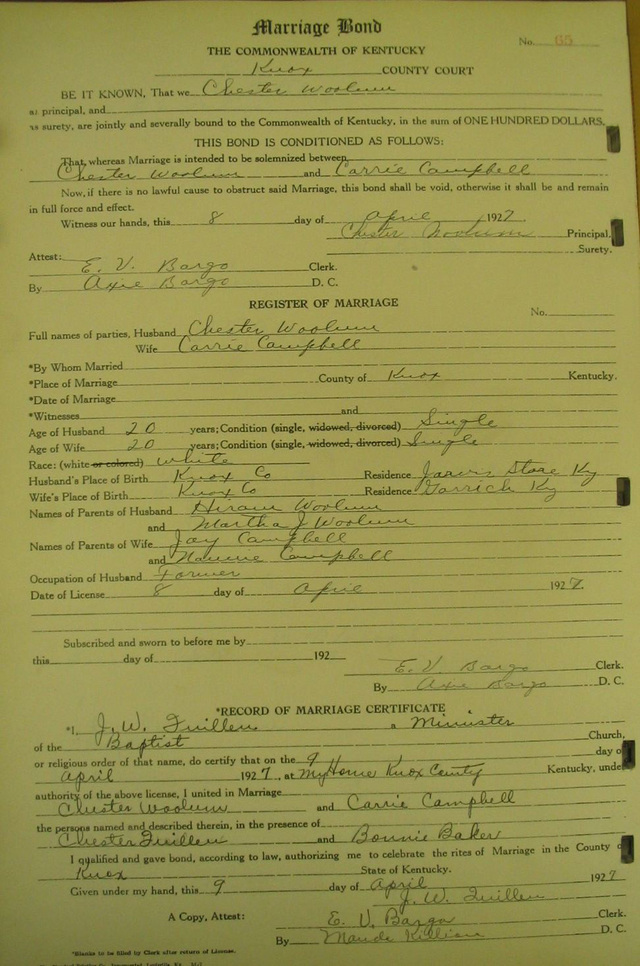 Marriage Bond
No. 65
THE COMMONWEALTH OF KENTUCKY
Knox COUNTY COURT
BE IT KNOWN, That we Chester Woolum
as principal, and
as surety, are jointly and severally bound to the Commonwealth of Kentucky, in the sum of ONE HUNDRED DOLLARS.
THIS BOND IS CONDITIONED AS FOLLOWS:
That, whereas Marriage is intended to be solemnized between
Chester Woolum and Carrie Campbell
Now, if there is no lawful cause to obstruct said Marriage, this bond shall be void, otherwise it shall be and remain
in full force and effect.
Witness our hands, this 8 day of April 1927
Chester Woolum Principal.
Surety.
Attest:
E. V. Bargo Clerk.
By Axie Bargo D. C.
REGISTER OF MARRIAGE
No.
Full names of parties, Husband Chester Woolum
Wife Carrie Campbell
*By Whom Married
*Place of Marriage County of Knox Kentucky.
*Date of Marriage
*Witnesses and
Age of Husband 20 years; Condition (single, widowed, divorced) Single
Age of Wife 20 years; Condition (single, widowed, divorced) Single
Race: (white or colored) White
Husband's Place of Birth Knox Co Residence Jarvis Store Ky
Wife's Place of Birth Knox Co Residence Garrich Ky
Names of Parents of Husband Hiram Woolum
and Martha J Woolum
Names of Parents of Wife Jay Campbell
and Nannie Campbell
Occupation of Husband Farmer
Date of License 8 day of April 1927.
Subscribed and sworn to before me by
this day of 192
E. V. Bargo Clerk.
By Axie Bargo D. C.
*RECORD OF MARRIAGE CERTIFICATE
*I, J. W. Quillen a Minister
of the Baptist Church,
or religious order of that name, do certify that on the 9 day of
April 1927, at My Home Knox County Kentucky, under
authority of the above license, I united in Marriage
Chester Woolum and Carrie Campbell
the persons named and described therein, in the presence of
Chester Quillen and Bonnie Baker
I qualified and gave bond, according to law, authorizing me to celebrate the rites of Marriage in the County of
Knox State of Kentucky.
Given under my hand, this 9 day of April 1927
J. W. Quillen
A Copy, Attest: E. V. Bargo Clerk.
By Maude Killian D. C.
*Blanks to be filled by Clerk after return of License.